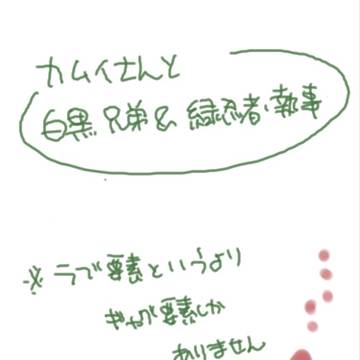 カムイさんと
白黒兄弟&緑忍者・執事
※ラブ要素というより
ギャグ要素しか
ありません